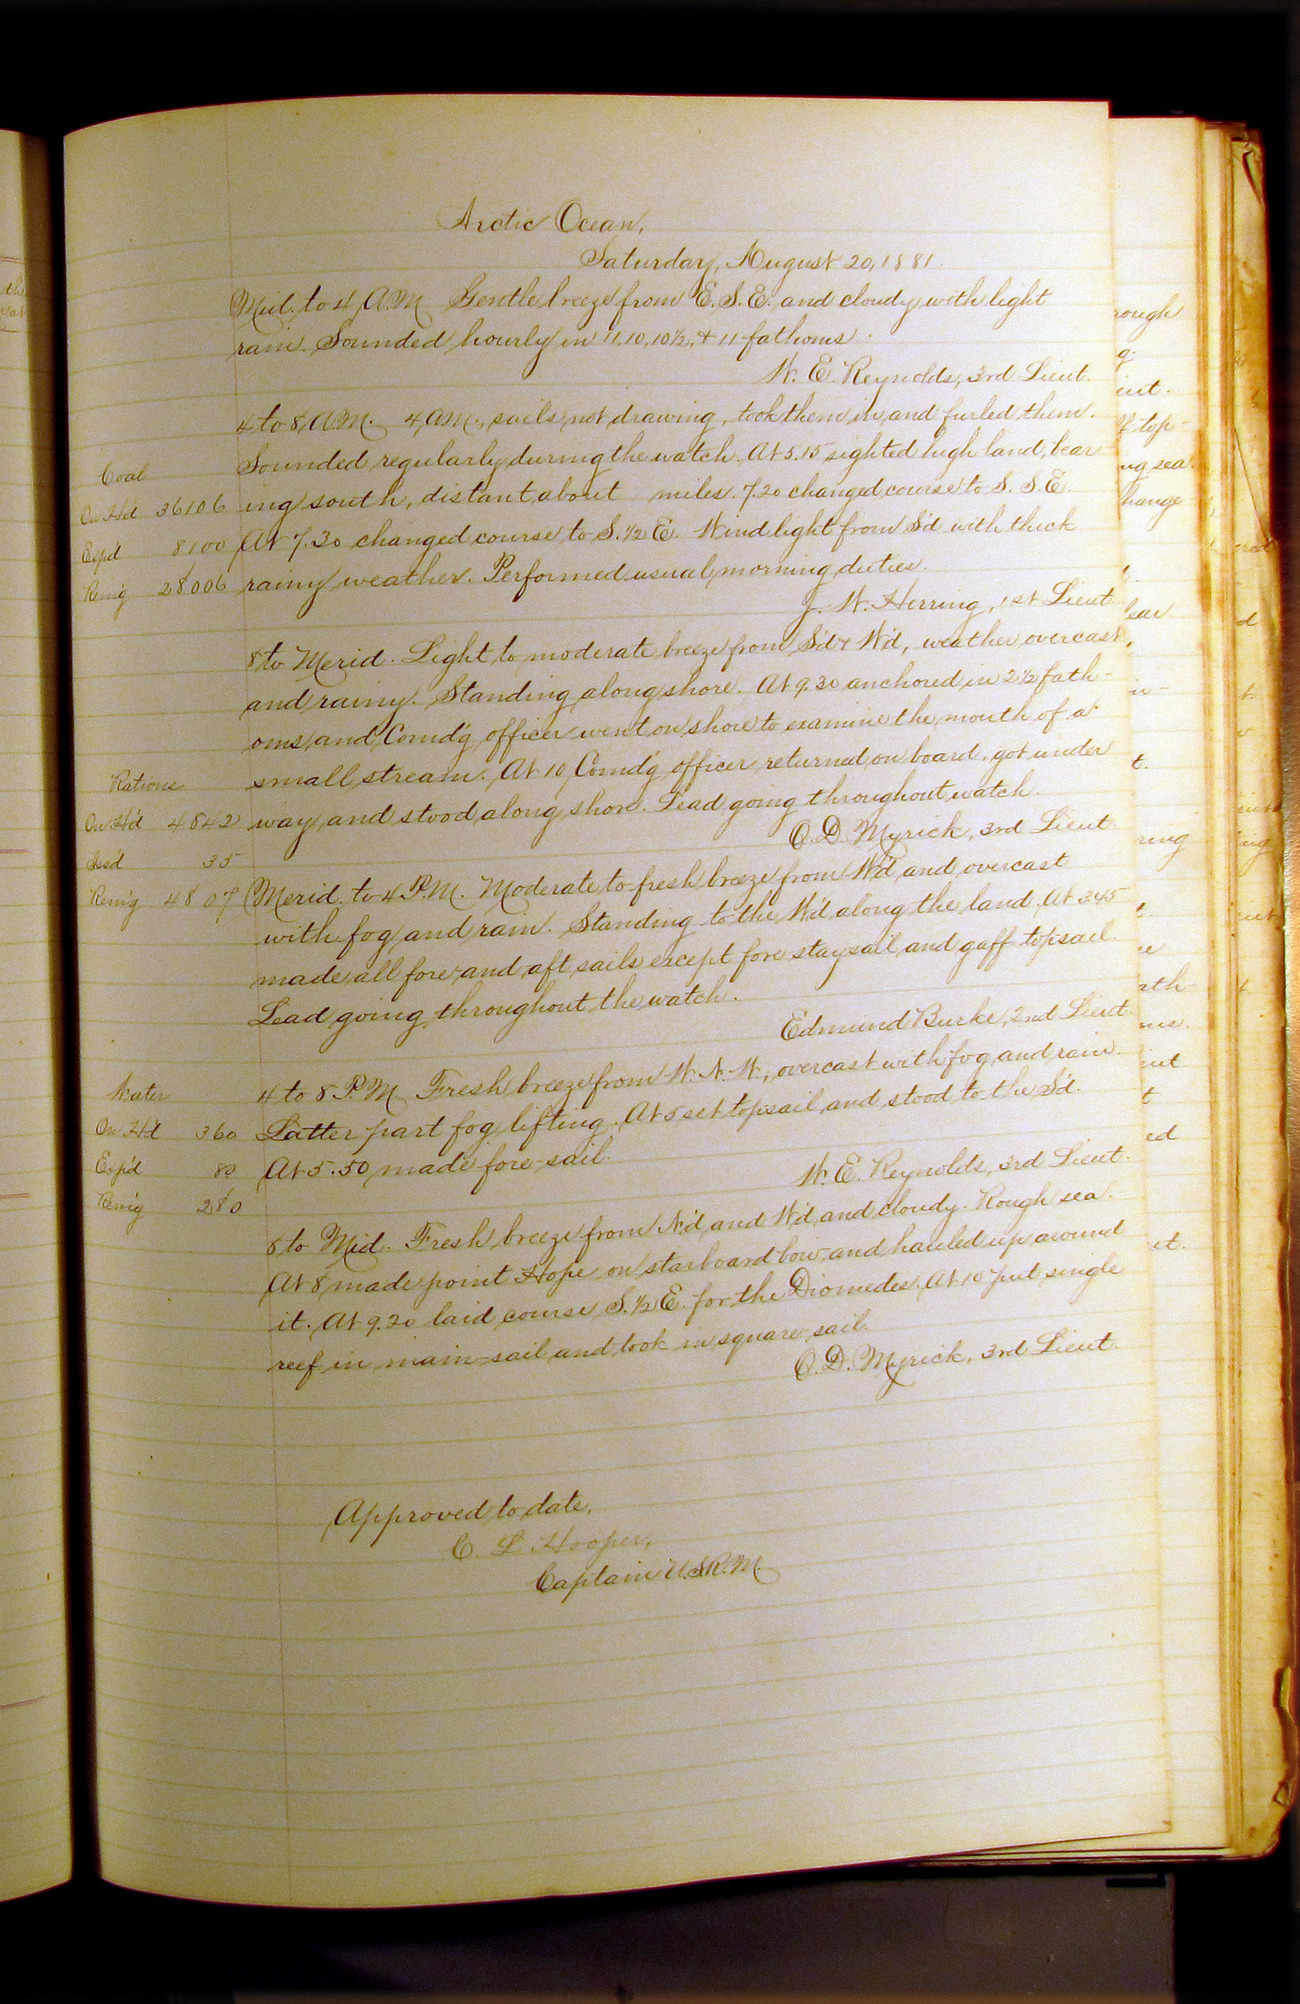 Arctic Ocean,
Saturday, August 20, 1881
Mid. to 4 A.M. Gentle breeze from E.S.E. and cloudy with light
rain. Sounded hourly in 11, 10, 10½, & 11 fathoms.
W. E. Reynolds, 3rd Lieut.
4 to 8 A.M. 4 A.M., sails not drawing, took them in and furled them.
Sounded regularly during the watch. At 5.15 sighted high land, bear
Coal
On H'd 36106 ing south, distant about miles. 7.20 changed course to S. S. E.
Exp'd 8100 At 7.30 changed course to S. ½ E. Wind light from S'd with thick
Rem'g 28006 rainy weather. Performed usual morning duties.
J. W. Herring, 1st Lieut
8 to Merid. Light to moderate breeze from S'd & W'd, weather overcast
and rainy. Standing along shore. At 9.30 anchored in 2½ fath-
oms and Comd'g officer went on shore to examine the mouth of a
Rations
small stream. At 10 Comd'g officer returned on board, got under
On H'd 4842 way, and stood along shore. Lead going throughout watch.
O. D. Myrick, 3rd Lieut
Iss'd 35
Rem'g 4807 Merid. to 4 P.M. Moderate to fresh breeze from W'd and overcast
with fog and rain. Standing to the W'd along the land. At 3.45
made all fore and aft sails except fore staysail and gaff topsail.
Lead going throughout the watch.
Edmund Burke, 2nd Lieut
Water
4 to 8 P.M. Fresh breeze from W. N. W., overcast with fog and rain.
On H'd 360 Latter part fog lifting. At 5 set topsail and stood to the S'd.
Exp'd 80 At 5.50 made fore-sail.
W. E. Reynolds, 3rd Lieut.
Rem'g 280
8 to Mid. Fresh breeze from N'd and W'd and cloudy. Rough sea.
At 8 made point Hope on starboard bow and hauled up around
it. At 9.20 laid course S. ½ E. for the Diomedes. At 10 put single
reef in main-sail and took in square-sail.
O. D. Myrick, 3rd Lieut.
Approved to date,
C. L. Hooper,
Captain U.S.R.M.